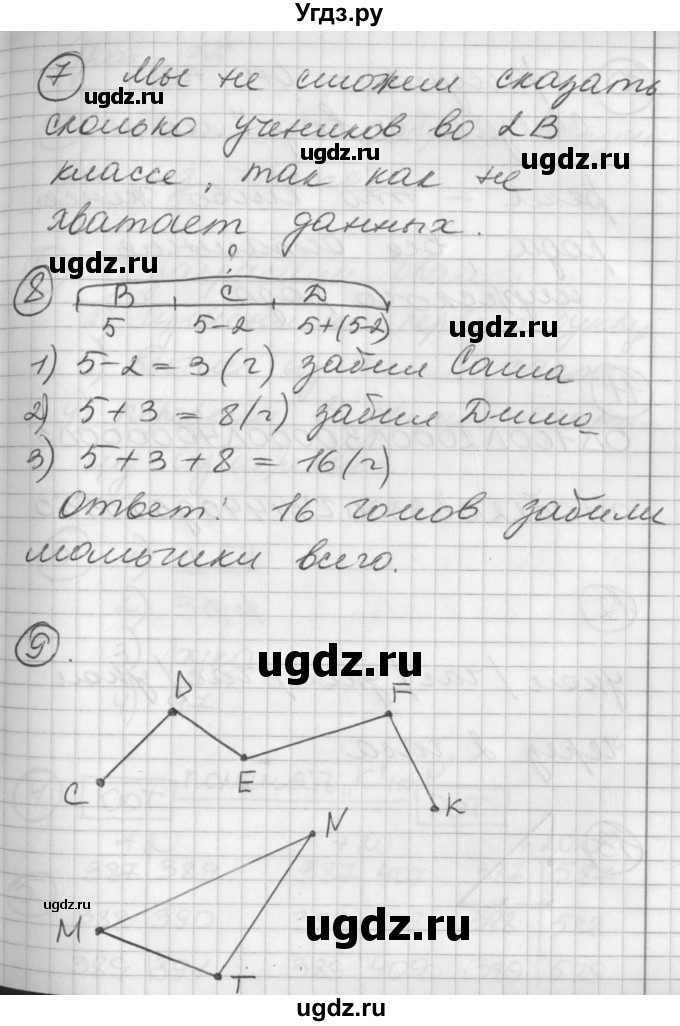 Угдз.ру
7 Мы не сможем сказать
ugdz.ru
сколько учеников во 2В
ugdz.ru
классе, так как не
ugdz.ru
хватает данных.
ugdz.ru
?
8 В С D
5 5-2 5+(5-2)
ugdz.ru
1) 5-2=3(г) забил Саша
2) 5+3=8(г) забил Дима
3) 5+3+8=16(г)
Ответ: 16 голов забили
мальчики всего.
9.
ugdz.ru
D F
C E K
N
ugdz.ru
M ugdz.ru
T
ugdz.ru